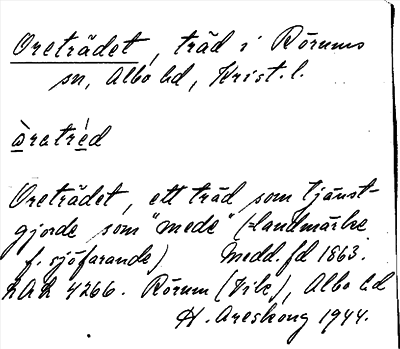 Oreträdet, träd i Rörums
sn, Albo hd, Krist. l.
òretréd
Oreträdet, ett träd som tjänst-
gjorde som "mede" (=landmärke
f. sjöfarande) Medd. fd 1863.
LAL 4266. Rörum (Vik), Albo hd
H. Areskoug 1944.